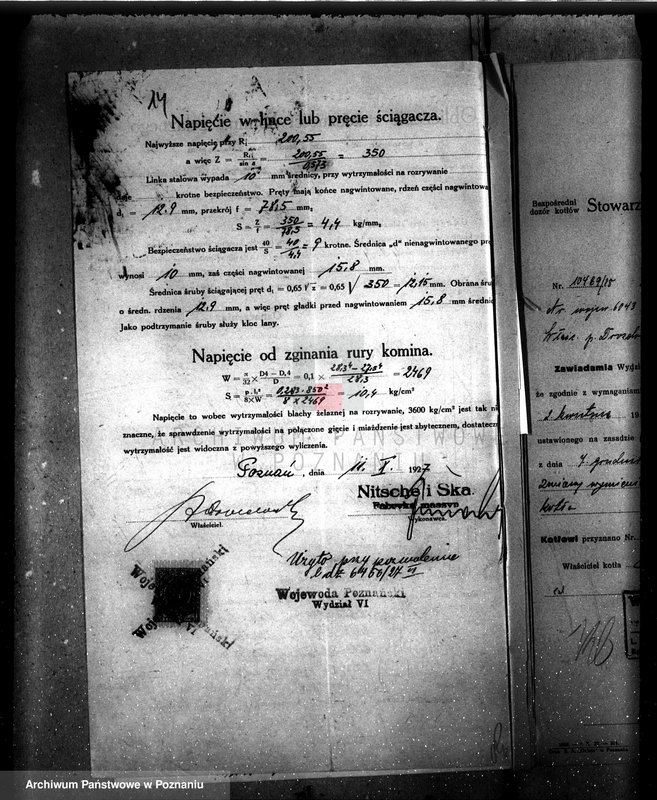 14
Napięcie w lince lub pręcie ściągacza.
Najwyższe napięcie przy R₁ 200,55
a więc Z = R₁ / sin α = 200,55 / 0,573 = 350
Linka stalowa wypada 10 mm średnicy, przy wytrzymałości na rozrywanie
daje krotne bezpieczeństwo. Pręty mają końce nagwintowane, rdzeń części nagwintowa
d₁ = 12,9 mm, przekrój f = 78,5 mm₂
S = Z / f = 350 / 78,5 = 4,4 kg/mm₂
Bezpieczeństwo ściągacza jest 40 / S = 40 / 4,4 = 9 krotne. Średnica „d" nienagwintowanego prę
wynosi 10 mm, zaś części nagwintowanej 15,8 mm.
Średnica śruby ściągającej pręt d₁ = 0,65 √z = 0,65 √350 = 12,15 mm. Obrana śrub
o średn. rdzenia 12,9 mm, a więc pręt gładki przed nagwintowaniem 15,8 mm średnic
Jako podtrzymanie śruby służy kloc lany.
Napięcie od zginania rury komina.
W = π / 32 × D4 – D₁4 / D = 0,1 × 28,3⁴ – 27,8⁴ / 28,3 = 2469
S = p . l₁² / 8×W = 0,283 · 850² / 8 × 2469 = 10,4 kg/cm²
Napięcie to wobec wytrzymałości blachy żelaznej na rozrywanie, 3600 kg/cm² jest tak nie
znaczne, że sprawdzenie wytrzymałości na połączone gięcie i miażdzenie jest zbytecznem, dostateczn
wytrzymałość jest widoczna z powyższego wyliczenia.
ARCHIWUM PAŃSTWOWE
W POZNANIU
Poznań, dnia 11. X. 1927
Nitsche i Ska.
Fabryka maszyn
Właściciel.
Wykonawca.
Użyto przy pozwolenie
l. dz. 6460/27 VI
Wojewoda Poznański
Wydział VI
Wojewoda Poznański
Bezpośredni
dozór kotłów
Stowarz
Nr. 10469/15
Zawiadamia Wydzi
że zgodnie z wymaganiam
2 kwietnia 19
ustanowionego na zasadzie
z dnia 7. grudnia
zmiany wymien
kotła
Kotłowi przyznano Nr.
Właściciel kotła
Archiwum Państwowe w Poznaniu